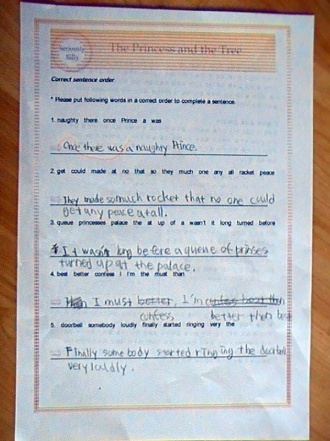 seriously
silly
The Princess and the Tree
Correct sentence order
* Please put following words in a correct order to complete a sentence.
1. naughty there once Prince a was
Once there was a naughty Prince.
2. get could made at no that so they much one any all racket peace
They made so much rocket that no one could
get any peace at all.
3. queue princesses palace the at up of a wasn't it long turned before
It wasn't long before a queue of prinses
turned up at the palace.
4. best better confess I I'm the must than
I must better, I'm confess best than
confess better than best
5. doorbell somebody loudly finally started ringing very the
Finally somebody started ringing the doorbell
very loudly.